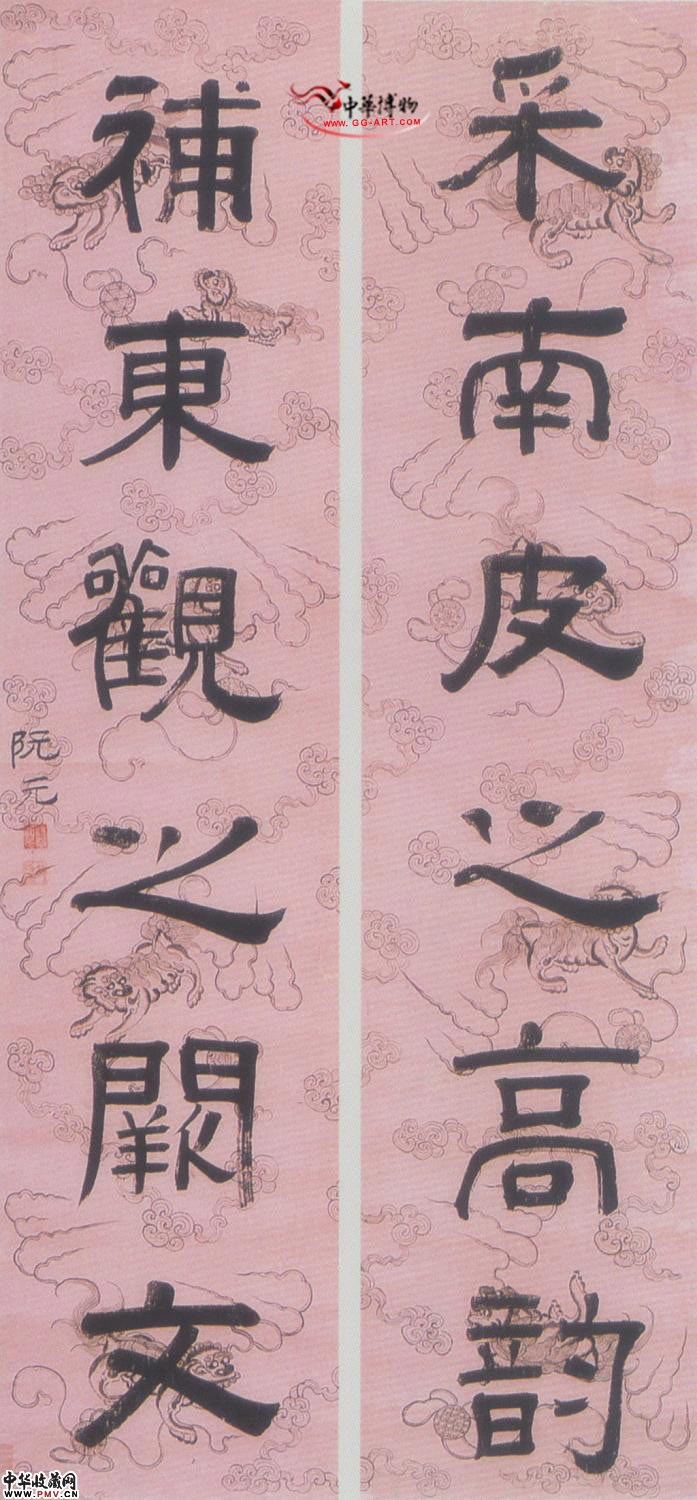 采南皮之高韵
補東觀之闕文
阮元
中華博物
www.GG-ART.com
中华收藏网
www.PMV.CN